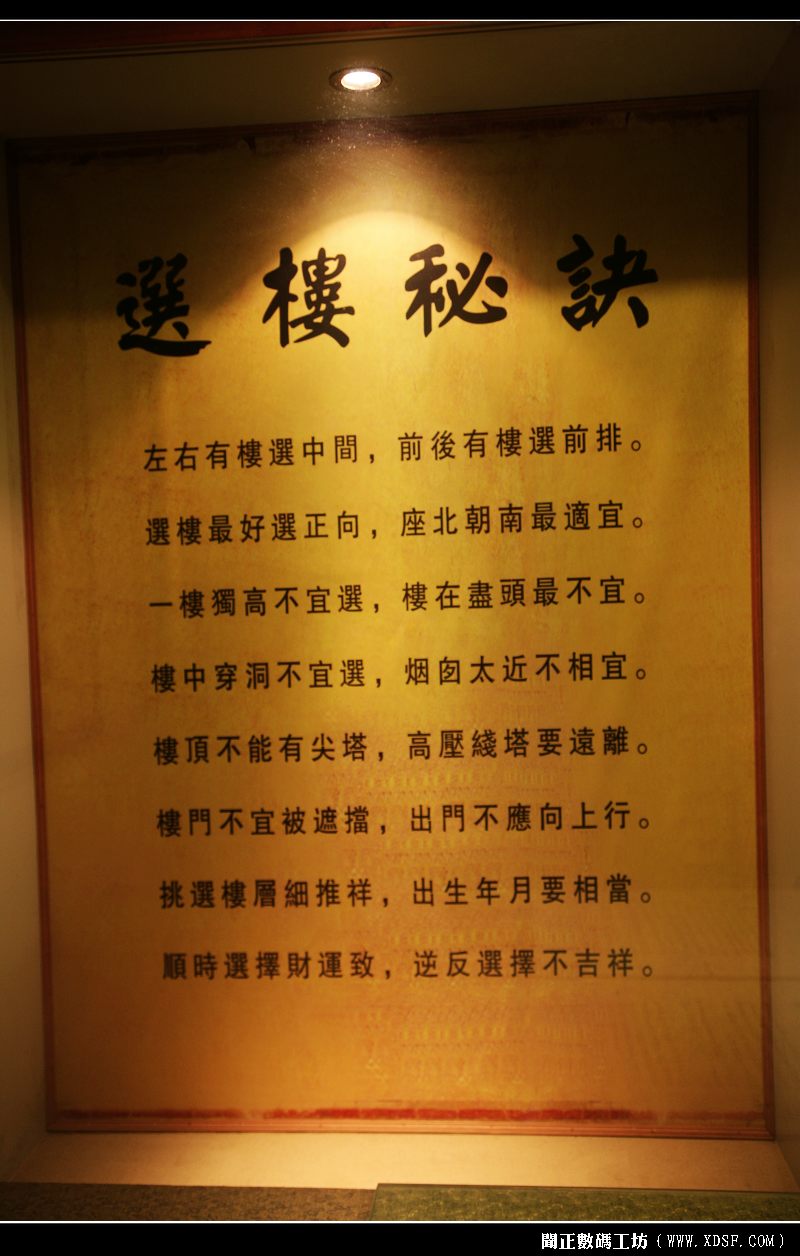 選樓秘訣
左右有樓選中間，前後有樓選前排。
選樓最好選正向，座北朝南最適宜。
一樓獨高不宜選，樓在盡頭最不宜。
樓中穿洞不宜選，烟囱太近不相宜。
樓頂不能有尖塔，高壓綫塔要遠離。
樓門不宜被遮擋，出門不應向上行。
挑選樓層細推祥，出生年月要相當。
順時選擇財運致，逆反選擇不吉祥。
聞正數碼工坊（WWW.XDSF.COM）